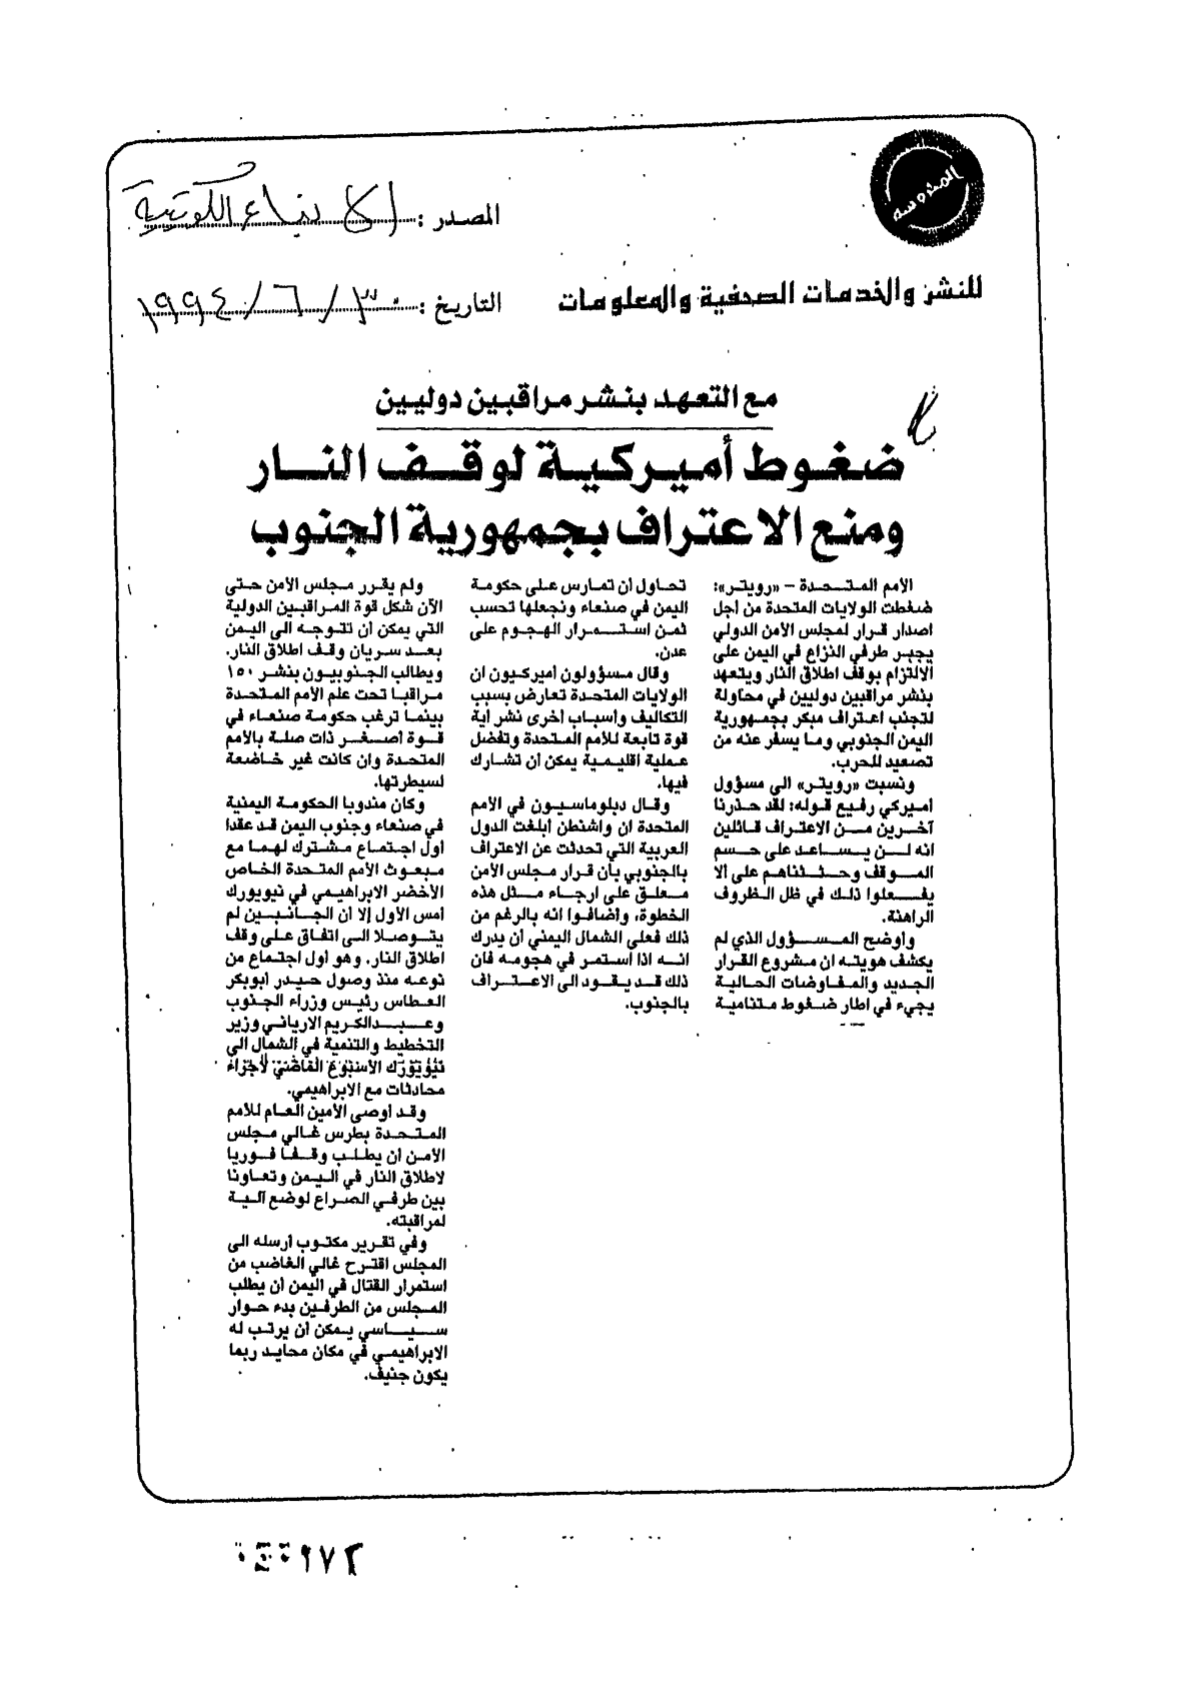 المحروسة
المصدر : الانباء الكويتية
للنشر والخدمات الصحفية والمعلومات
التاريخ : ٣٠ / ٦ / ١٩٩٤
مع التعهد بنشر مراقبين دوليين
ضغوط أميركية لوقف النار
ومنع الاعتراف بجمهورية الجنوب
الأمم المتحدة – «رويتر»:
ضغطت الولايات المتحدة من أجل
اصدار قرار لمجلس الأمن الدولي
يجبر طرفي النزاع في اليمن على
الالتزام بوقف اطلاق النار ويتعهد
بنشر مراقبين دوليين في محاولة
لتجنب اعتراف مبكر بجمهورية
اليمن الجنوبي وما يسفر عنه من
تصعيد للحرب.
ونسبت «رويتر» الى مسؤول
اميركي رفيع قوله: لقد حذرنا
آخرين من الاعتراف قائلين
انه لن يساعد على حسم
الموقف وحثثناهم على ألا
يفعلوا ذلك في ظل الظروف
الراهنة.
وأوضح المسؤول الذي لم
يكشف هويته ان مشروع القرار
الجديد والمفاوضات الحالية
يجيء في اطار ضغوط متنامية
تحاول أن تمارس على حكومة
اليمن في صنعاء ونجعلها تحسب
ثمن استمرار الهجوم على
عدن.
وقال مسؤولون أميركيون ان
الولايات المتحدة تعارض بسبب
التكاليف وأسباب أخرى نشر أية
قوة تابعة للأمم المتحدة وتفضل
عملية اقليمية يمكن أن تشارك
فيها.
وقال دبلوماسيون في الأمم
المتحدة ان واشنطن أبلغت الدول
العربية التي تحدثت عن الاعتراف
بالجنوبي بأن قرار مجلس الأمن
معلق على ارجاء مثل هذه
الخطوة، وأضافوا انه بالرغم من
ذلك فعلى الشمال اليمني أن يدرك
انه اذا استمر في هجومه فان
ذلك قد يقود الى الاعتراف
بالجنوب.
ولم يقرر مجلس الأمن حتى
الآن شكل قوة المراقبين الدولية
التي يمكن أن تتوجه الى اليمن
بعد سريان وقف اطلاق النار.
ويطالب الجنوبيون بنشر ١٥٠
مراقبا تحت علم الأمم المتحدة
بينما ترغب حكومة صنعاء في
قوة أصغر ذات صلة بالأمم
المتحدة وان كانت غير خاضعة
لسيطرتها.
وكان مندوبا الحكومة اليمنية
في صنعاء وجنوب اليمن قد عقدا
أول اجتماع مشترك لهما مع
مبعوث الأمم المتحدة الخاص
الأخضر الابراهيمي في نيويورك
أمس الأول إلا أن الجانبين لم
يتوصلا الى اتفاق على وقف
اطلاق النار. وهو أول اجتماع من
نوعه منذ وصول حيدر أبوبكر
العطاس رئيس وزراء الجنوب
وعبدالكريم الارياني وزير
التخطيط والتنمية في الشمال الى
نيويورك الأسبوع الماضي لاجراء
محادثات مع الابراهيمي.
وقد أوصى الأمين العام للأمم
المتحدة بطرس غالي مجلس
الأمن أن يطلب وقفا فوريا
لاطلاق النار في اليمن وتعاونا
بين طرفي الصراع لوضع آلية
لمراقبته.
وفي تقرير مكتوب أرسله الى
المجلس اقترح غالي الغاضب من
استمرار القتال في اليمن أن يطلب
المجلس من الطرفين بدء حوار
سياسي يمكن أن يرتب له
الابراهيمي في مكان محايد ربما
يكون جنيف.